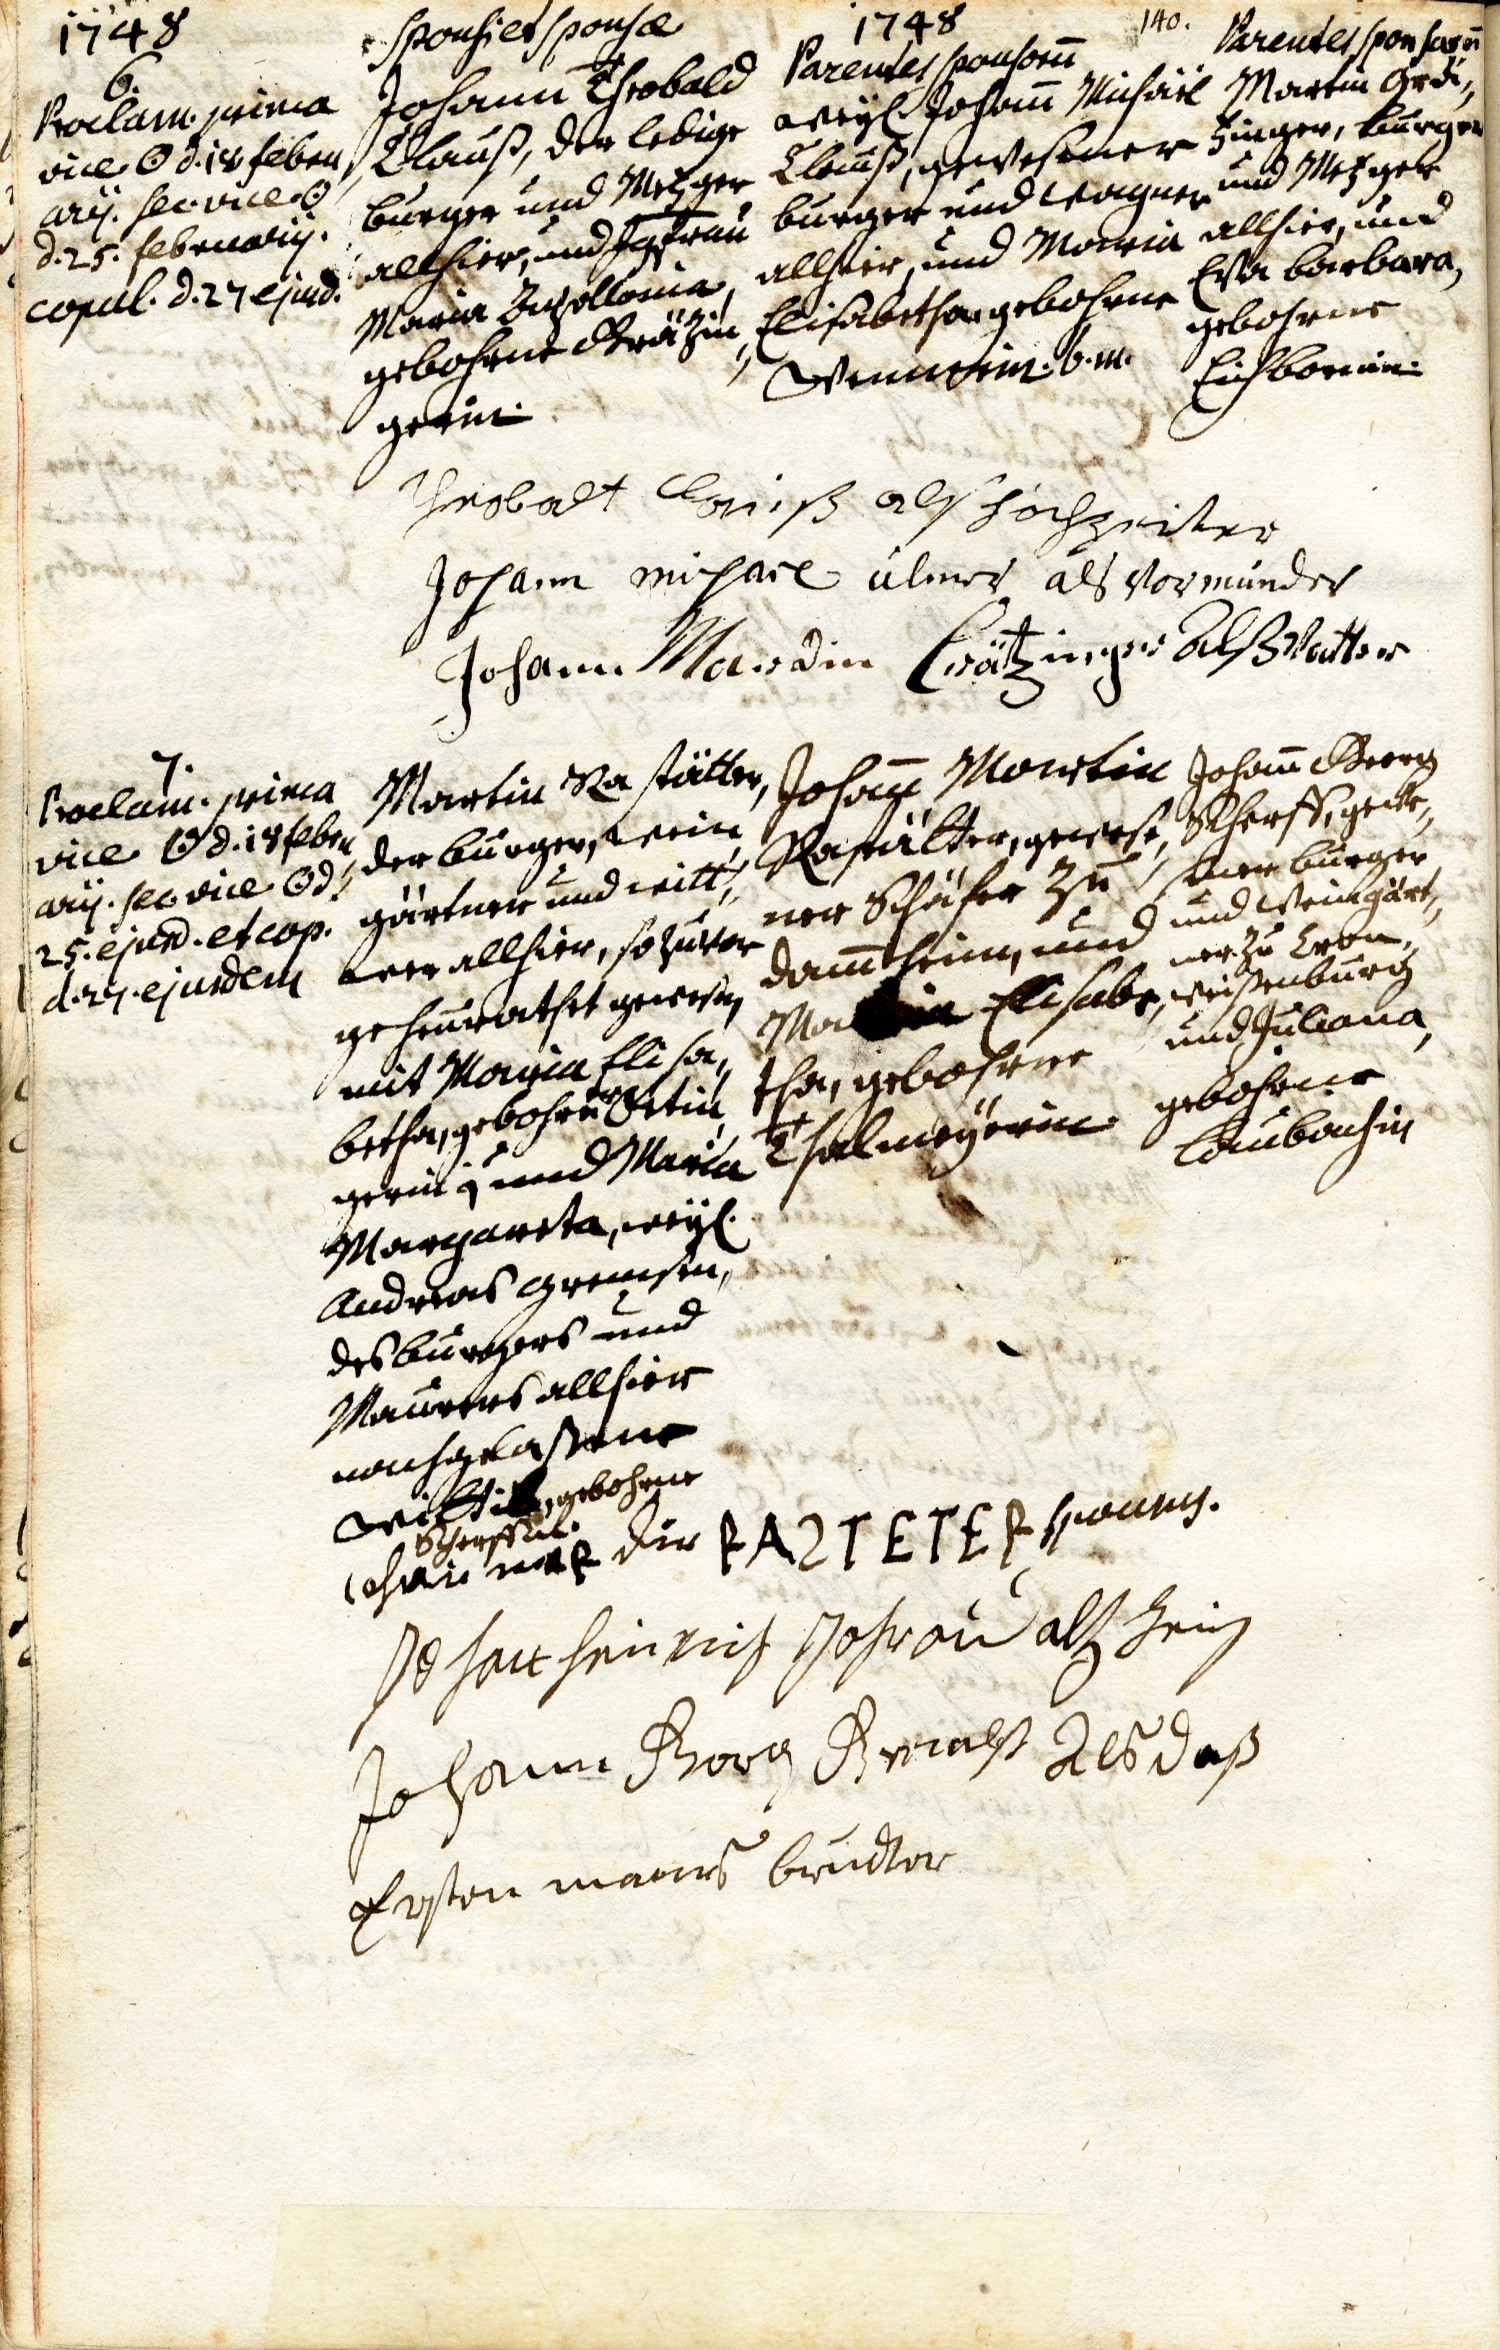 1748
6.
Proclam. prima
vice ☉ d. 18 febru,,
arij. sec. vice ☉
d. 25. februarij.
copul. d. 27 ejusd.
Sponsi et Sponsæ
Johann Theobald
Clauß, der ledige
burger und Metzger
allhier, und Jgfrau
Maria Apollonia,
gebohrne Grätzin,,
gerin.
1748
Parentes sponsorum̅
weyl. Johann̅ Michäel
Clauß, gewesener
burger und Wagner
allhier, und Maria
Elisabetha gebohrne
b. m.
140.
Parentes sponsarum̅
Martin Grä,,
tzinger, burger
und Metzger
allhier, und
Eva barbara,
gebohrne
Theobalt Clauß als hochzeiter
Johann michael ulmer als Vormunder
Johann Mardin Crätzinger alß Vatter
7.
Proclam. prima
vice ☉ d. 18 febru
arij. sec. vice ☉ d.
25. ejusd. et cop.
d. 27. ejusdem
Martin Rastätter,
der burger, wein,,
gärtner und witt,,
wer allhier, so zuvor
geheurathet gewesen
mit Maria Elisa,,
betha, gebohrner Ettin,,
gerin; und Maria
Margareta, weyl.
Andreas
des burgers und
Maurers allhier
nachgelaßene
Wittib, gebohrne
Scherffin.
Johann̅ Martin
Rastätter, gewese,,
ner Schäfer zu
Dam̅heim, und
Maria Elisabe,,
tha, gebohrne
Thalmeyerin.
Johann̅ Georg
Scherff, gewe,,
sener burger
und Weingärt,,
ner zu Cron,,
weißenburg
und Juliana,
gebohrne
Laubachin
der RASTETER sponsus.
Johann Georg als daß
Ersten manns brudter